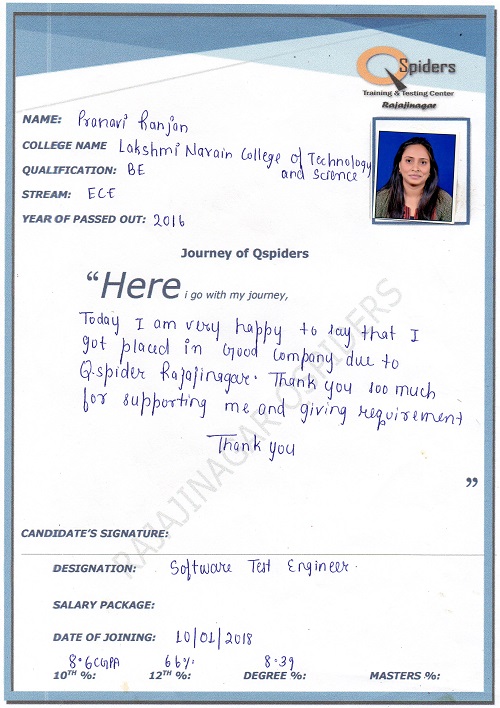 QSpiders
Training & Testing Center
Rajajinagar
NAME: Pranavi Ranjan
COLLEGE NAME Lakshmi Narain College of Technology
and Science
QUALIFICATION: BE
STREAM: ECE
YEAR OF PASSED OUT: 2016
Journey of Qspiders
“Here i go with my journey,
Today I am very happy to say that I
got placed in Good Company due to
Q-spider Rajajinagar. Thank you soo much
for supporting me and giving requirement
Thank you
”
RAJAJINAGAR QSPIDERS
CANDIDATE'S SIGNATURE:
DESIGNATION: Software Test Engineer.
SALARY PACKAGE:
DATE OF JOINING: 10/01/2018
8.6CGPA 66% 8.39
10TH %: 12TH %: DEGREE %: MASTERS %: